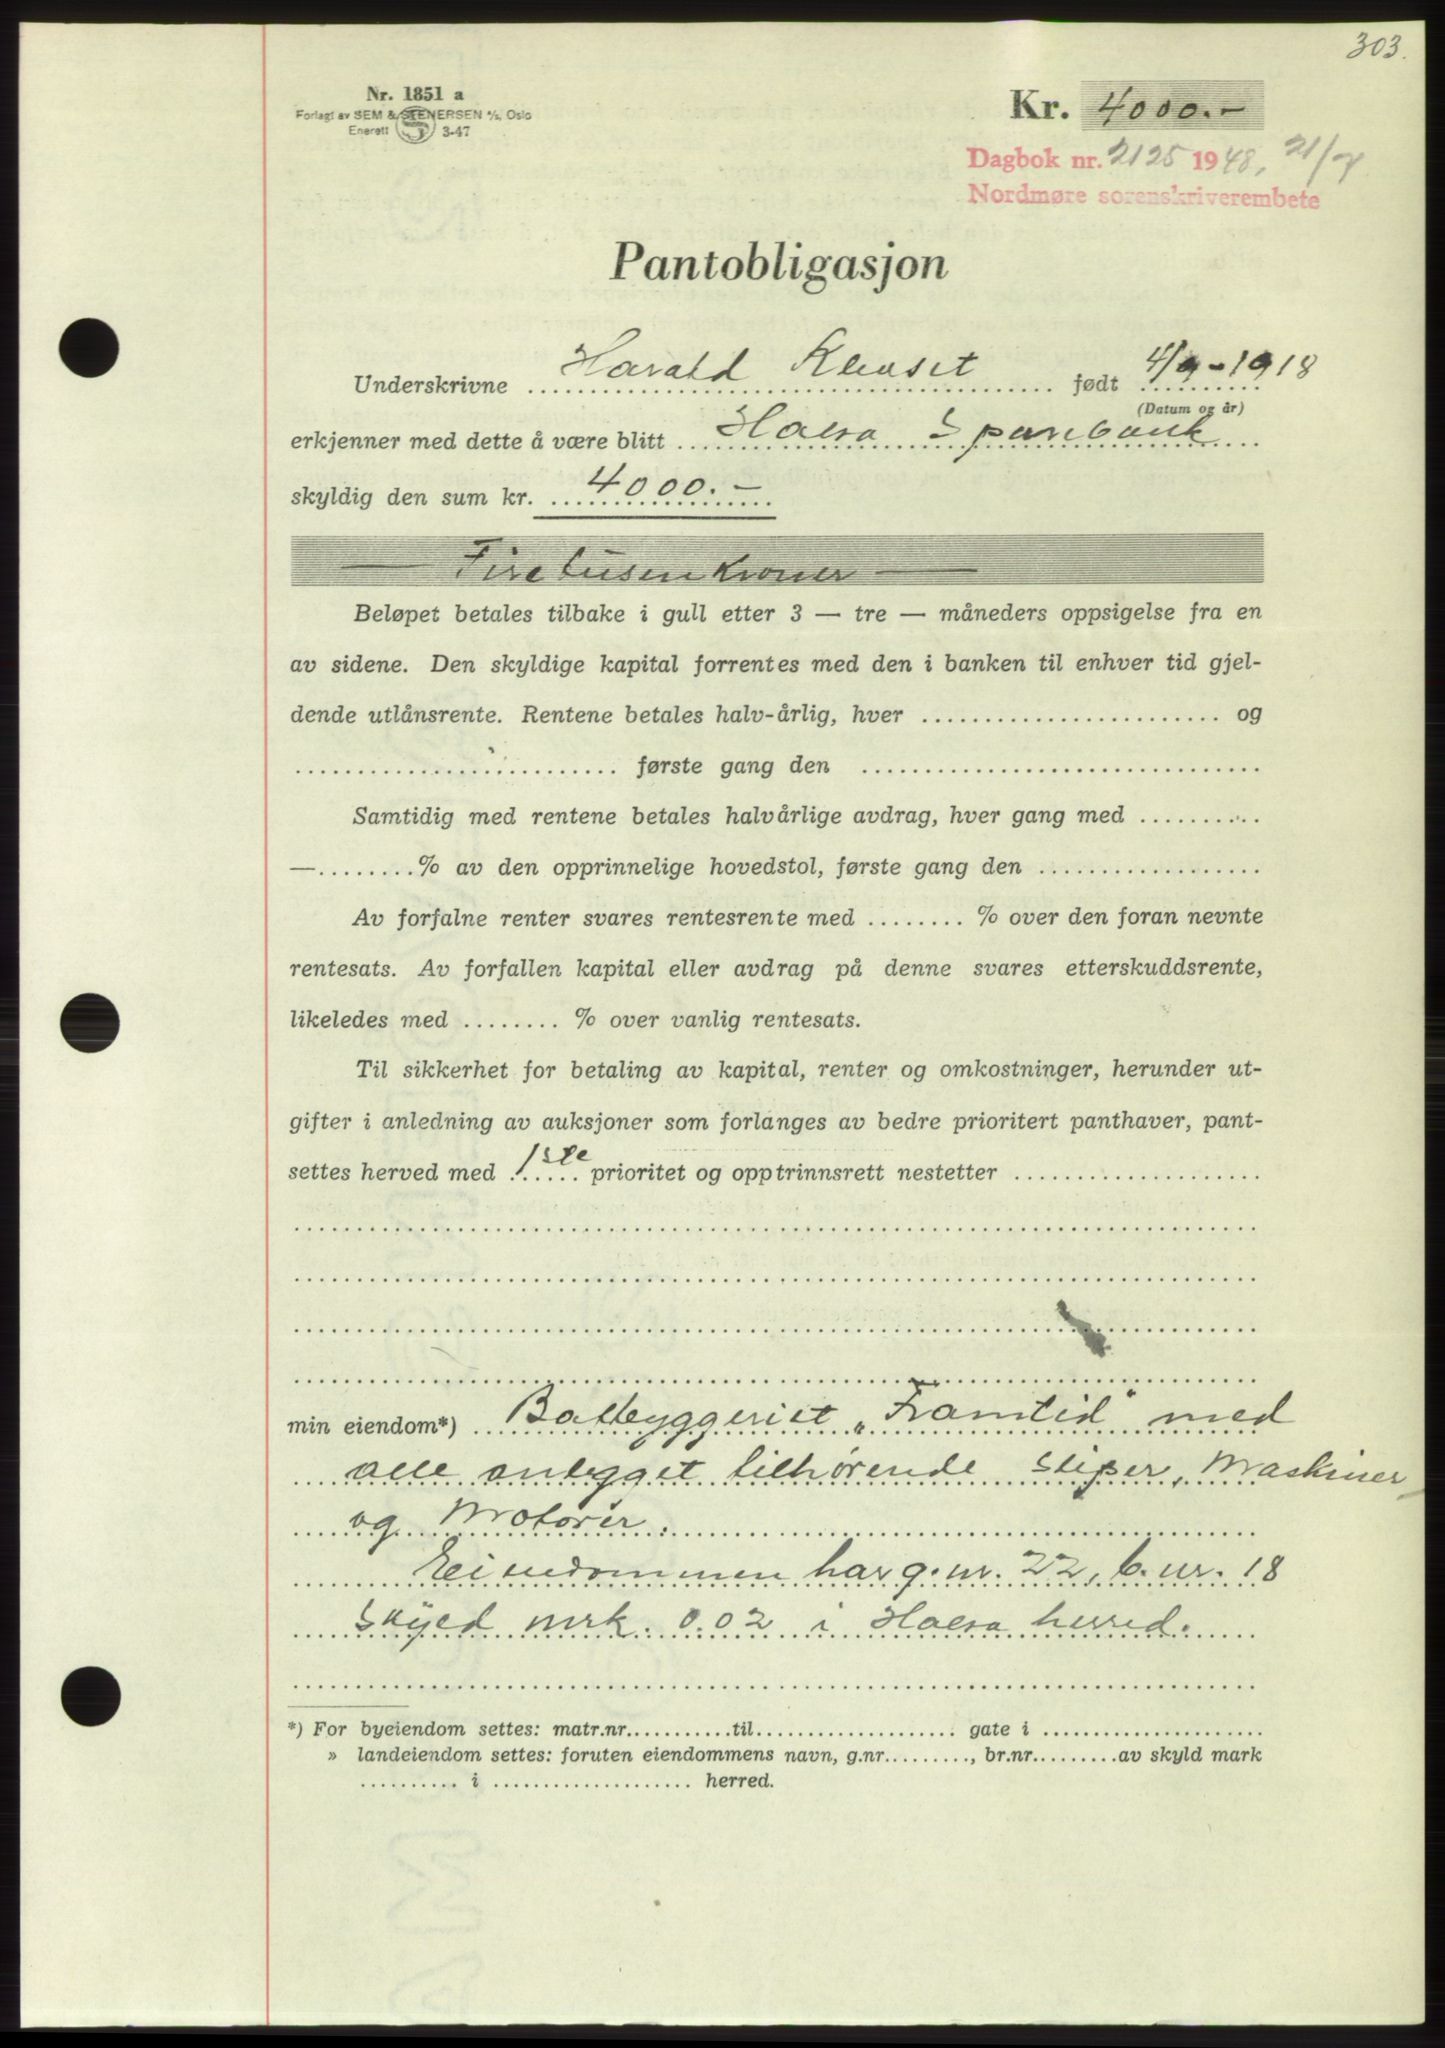 303.
Nr. 1851 a
Forlagt av SEM & STENERSEN A/S, Oslo
Enerett 3-47
Kr. 4000.-
Dagbok nr. 2125 1948, 21/7
Nordmøre sorenskriverembete
Pantobligasjon
Underskrivne Harald født 4/9-1918
(Datum og år)
erkjenner med dette å være blitt Halsa Sparebank
skyldig den sum kr. 4000.-
— Firetusenkroner —
Beløpet betales tilbake i gull etter 3 — tre — måneders oppsigelse fra en
av sidene. Den skyldige kapital forrentes med den i banken til enhver tid gjel-
dende utlånsrente. Rentene betales halv-årlig, hver ........................ og
.......................... første gang den ................................
Samtidig med rentene betales halvårlige avdrag, hver gang med ..........
—........% av den opprinnelige hovedstol, første gang den ..................
Av forfalne renter svares rentesrente med ........ % over den foran nevnte
rentesats. Av forfallen kapital eller avdrag på denne svares etterskuddsrente,
likeledes med ........ % over vanlig rentesats.
Til sikkerhet for betaling av kapital, renter og omkostninger, herunder ut-
gifter i anledning av auksjoner som forlanges av bedre prioritert panthaver, pant-
settes herved med 1ste prioritet og opptrinnsrett nestetter ....................
min eiendom*) Båtbyggeriet „Framtid" med
alle anlegget tilhørende sliper, Maskiner
og Motorer.
Eiendommen har g.nr. 22, b.nr. 18
Skyld mrk. 0.02 i Halsa herred.
*) For byeiendom settes: matr.nr...........til.................... gate i ......................
» landeiendom settes: foruten eiendommens navn, g.nr........., br.nr.........av skyld mark
.......... i .................... herred.